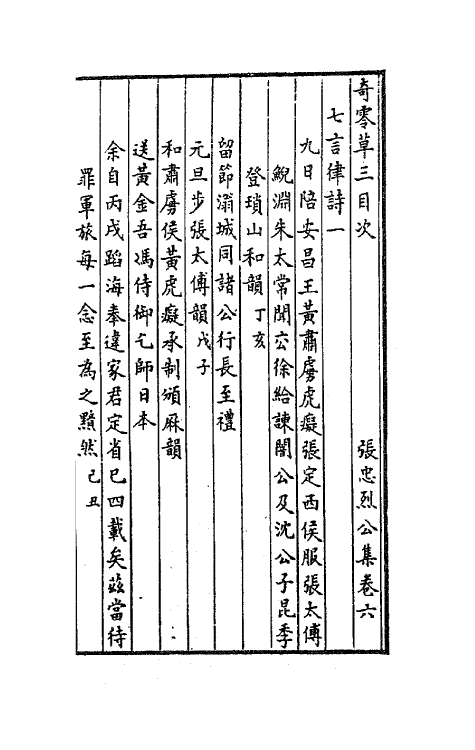 奇零草三目次　張忠烈公集卷六
七言律詩一
九日陪安昌王黃肅虜虎癡張定西侯服張太傅
鯢淵朱太常聞玄徐給諫闇公及沈公子昆季
登瑣山和韻丁亥
留節瀛城同諸公行長至禮
元旦步張太傅韻戊子
和肅虜侯黃虎癡承制頒麻韻
送黃金吾馮侍御乞師日本
余自丙戌蹈海奉違家君定省已四載矣茲當待
罪軍旅每一念至為之黯然己丑